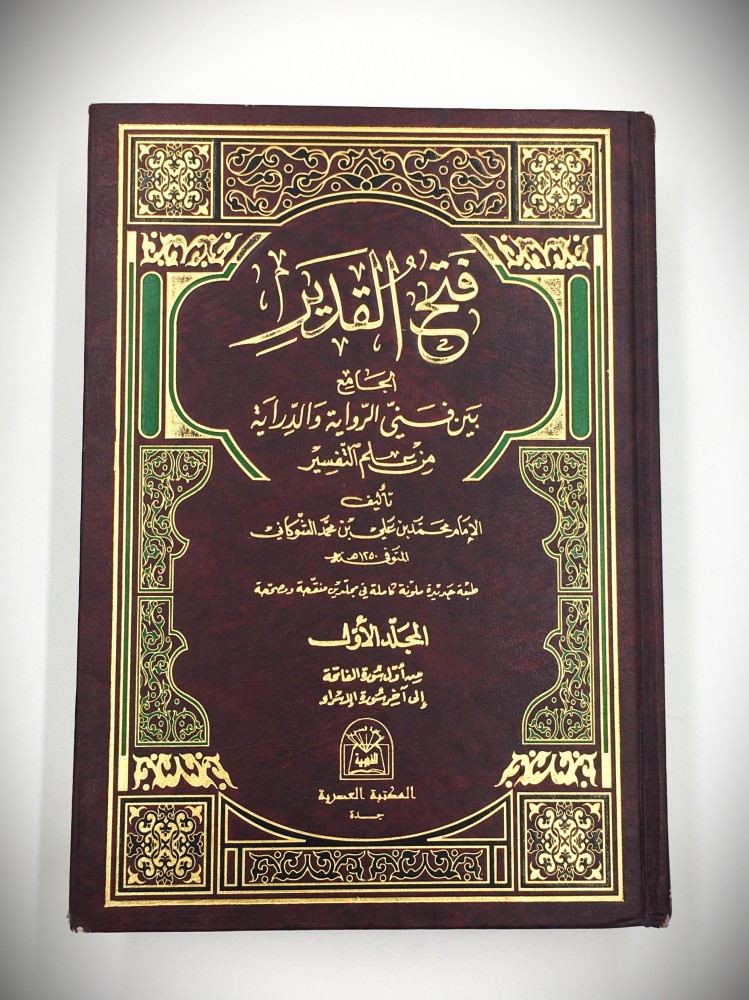 فَتْحُ القَدِيرِ
الجَامِع
بَين فَنيّ الرّوَاية وَالدِّرايَة
مِنْ عِلم التَّفسِير
تأليف
الإمَام محمَّد بن عَلي بن محمَّد الشّوكاني
المتوفى ١٢٥٠هـ
طبعَة جَديدة ملونة كاملة في مجلدين منقحة ومصححة
المجَلّد الأوّل
من أوّل سُورة الفاتحة
إلى آخر سُورة الإسراء
المكتبة العصرية
جدة